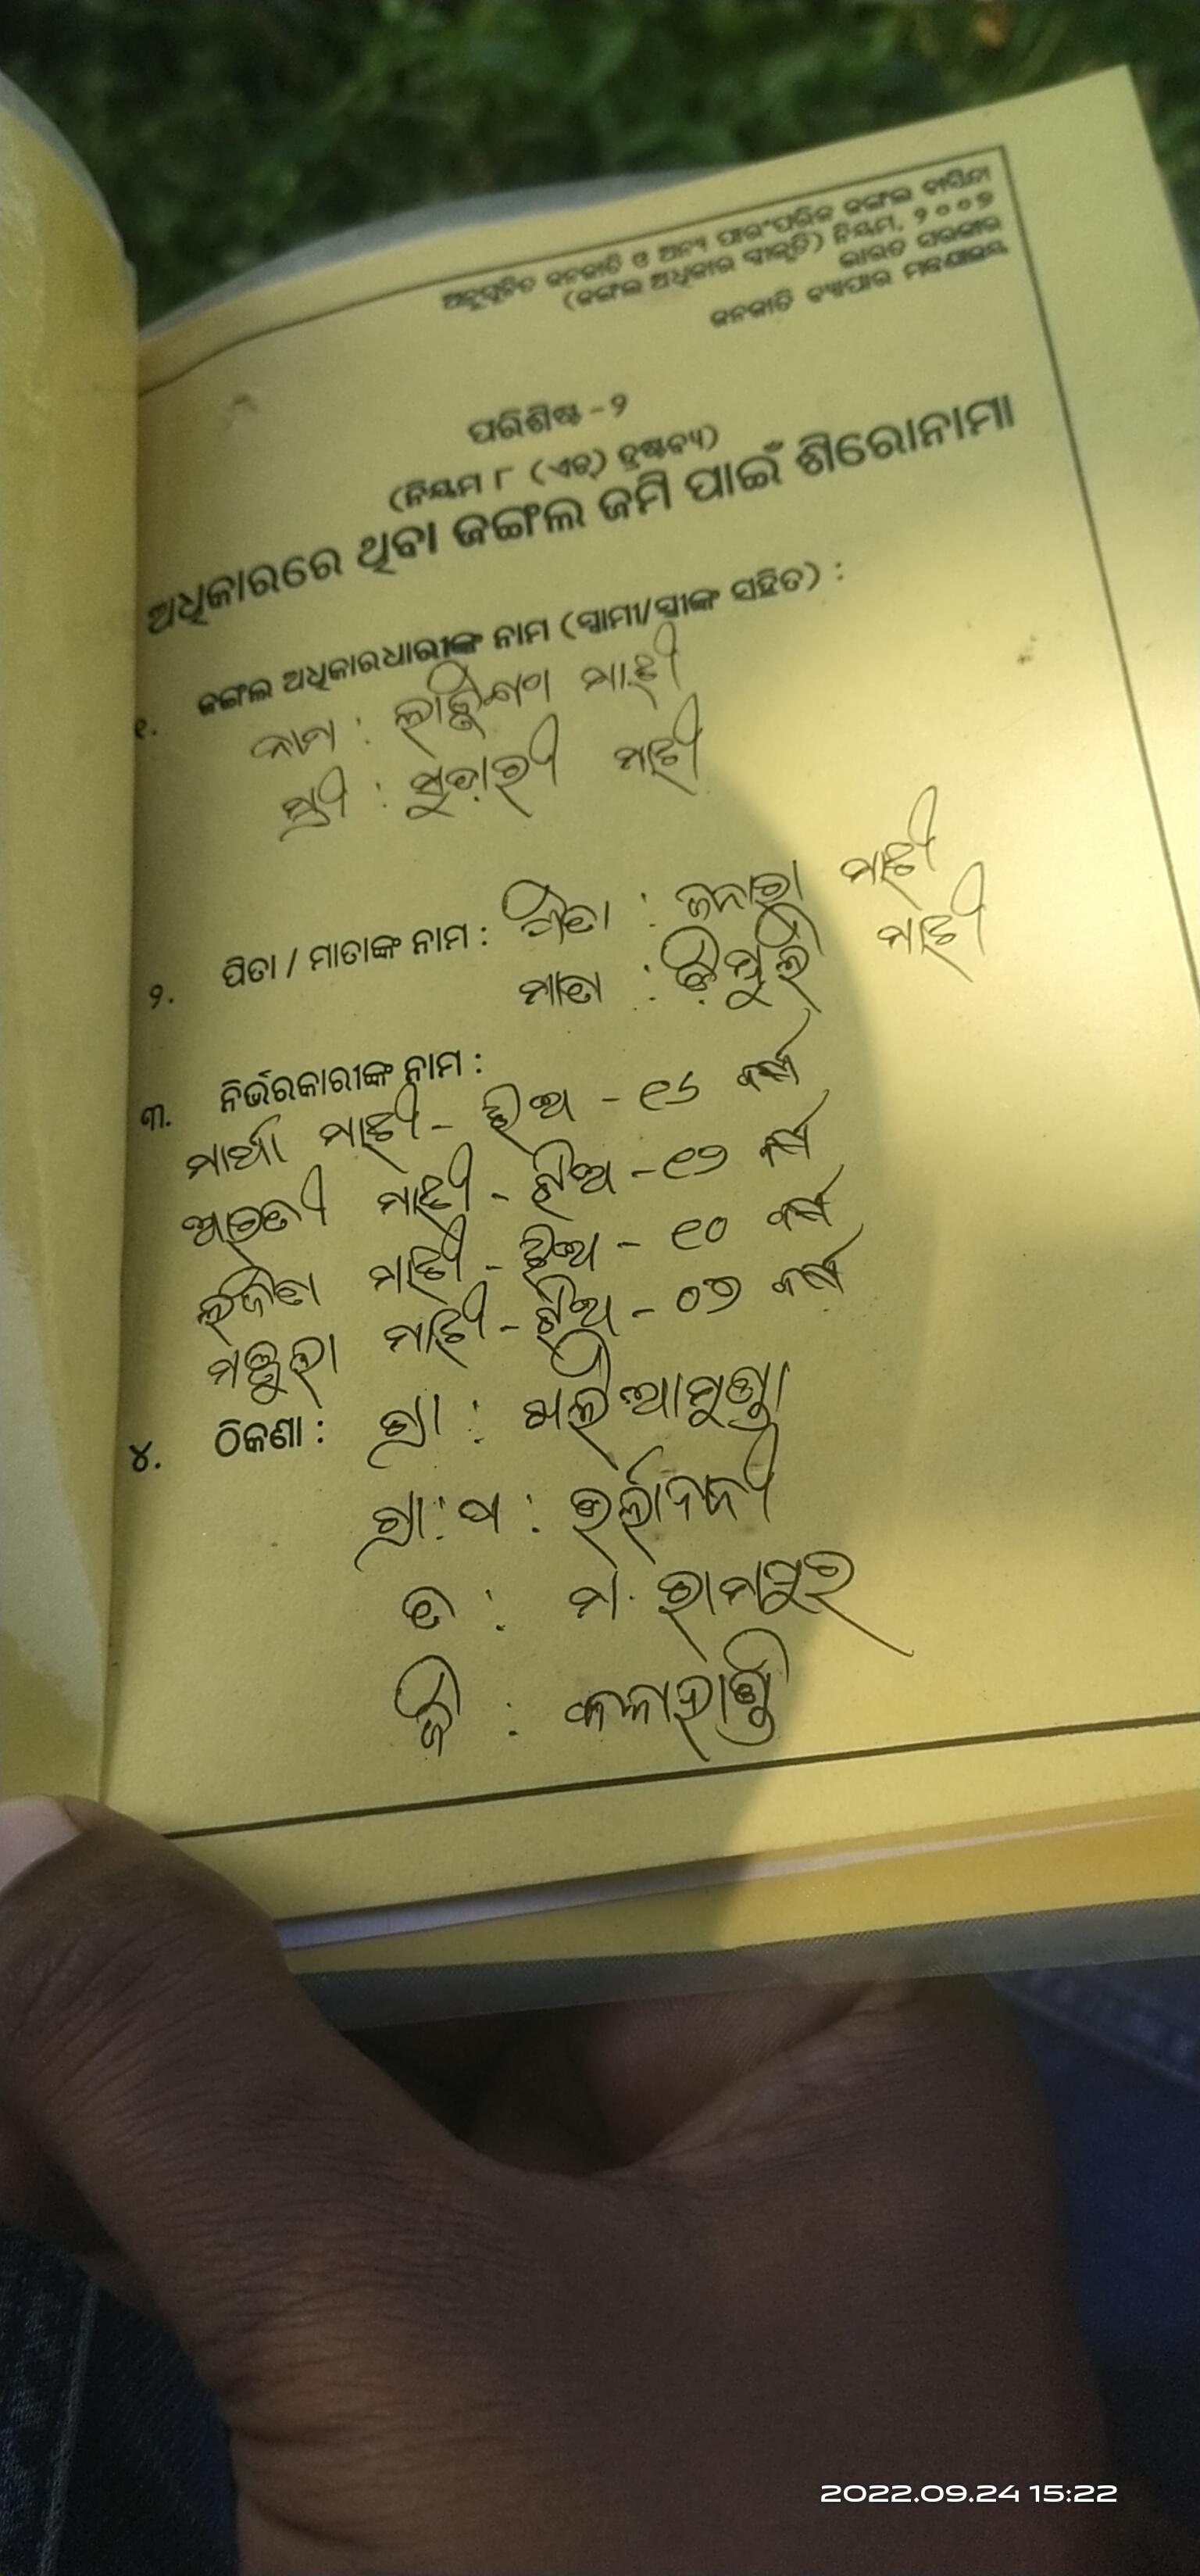 ଅନୁସୂଚିତ ଜନଜାତି ଓ ଅନ୍ୟ ପାରଂପରିକ ଜଙ୍ଗଲ ବାସିନ୍ଦା
(ଜଙ୍ଗଲ ଅଧିକାର ସ୍ୱୀକୃତି) ନିୟମ, ୨୦୦୭
ଭାରତ ସରକାର
ଜନଜାତି ବ୍ୟାପାର ମନ୍ତ୍ରଣାଳୟ
ପରିଶିଷ୍ଟ - ୨
(ନିୟମ ୮ (ଏଚ୍) ଦ୍ରଷ୍ଟବ୍ୟ)
ଅଧିକାରରେ ଥିବା ଜଙ୍ଗଲ ଜମି ପାଇଁ ଶିରୋନାମା
୧. ଜଙ୍ଗଲ ଅଧିକାରଧାରୀଙ୍କ ନାମ (ସ୍ୱାମୀ/ସ୍ତ୍ରୀଙ୍କ ସହିତ) :
ନାମ : ମାଝୀ
ସ୍ତ୍ରୀ : ମାଝୀ
୨. ପିତା / ମାତାଙ୍କ ନାମ : ପିତା : ମାଝୀ
ମାତା : ମାଝୀ
୩. ନିର୍ଭରକାରୀଙ୍କ ନାମ :
ମାଝୀ - ଝିଅ - ୧୬ ବର୍ଷ
ଆରତୀ ମାଝୀ - ଝିଅ - ୧୨ ବର୍ଷ
ଲଳିତା ମାଝୀ - ଝିଅ - ୧୦ ବର୍ଷ
ମାଝୀ - ଝିଅ - ୦୭ ବର୍ଷ
୪. ଠିକଣା : ଗ୍ରା : ଖଲିଆମୁଣ୍ଡା
ଗ୍ରା: ପ :
ତ : ମ. ରାମପୁର
ଜି : କଳାହାଣ୍ଡି
2022.09.24 15:22